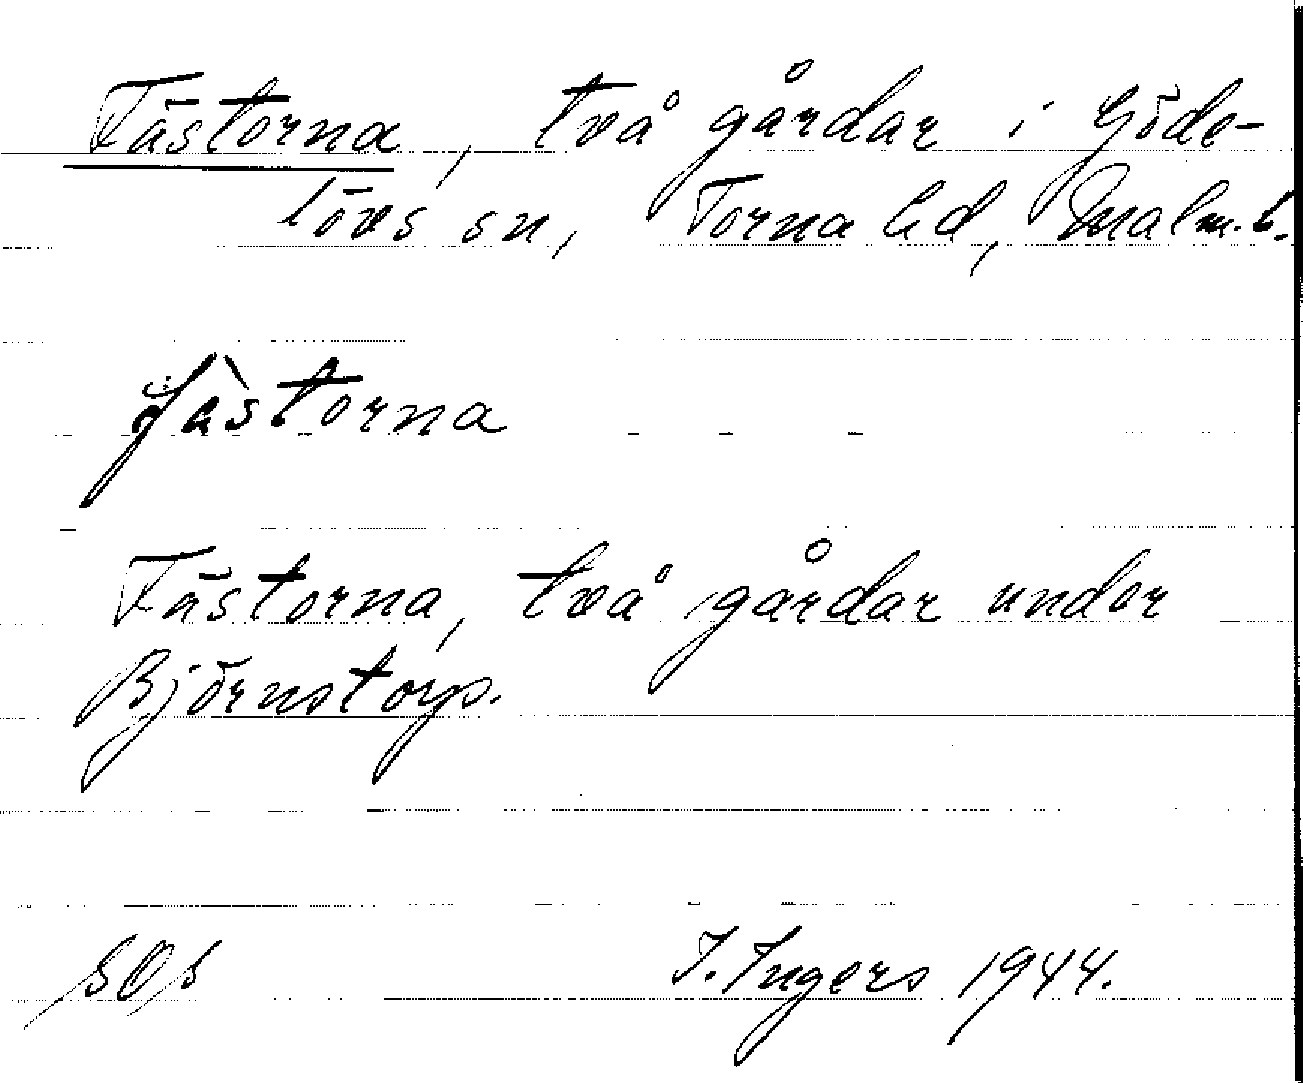 Fästorna, två gårdar i Göde-
lövs sn, Torna hd, Malm.l.
fàstorna
Fästorna, två gårdar under
Björnstorp.
I. Ingers 1944.